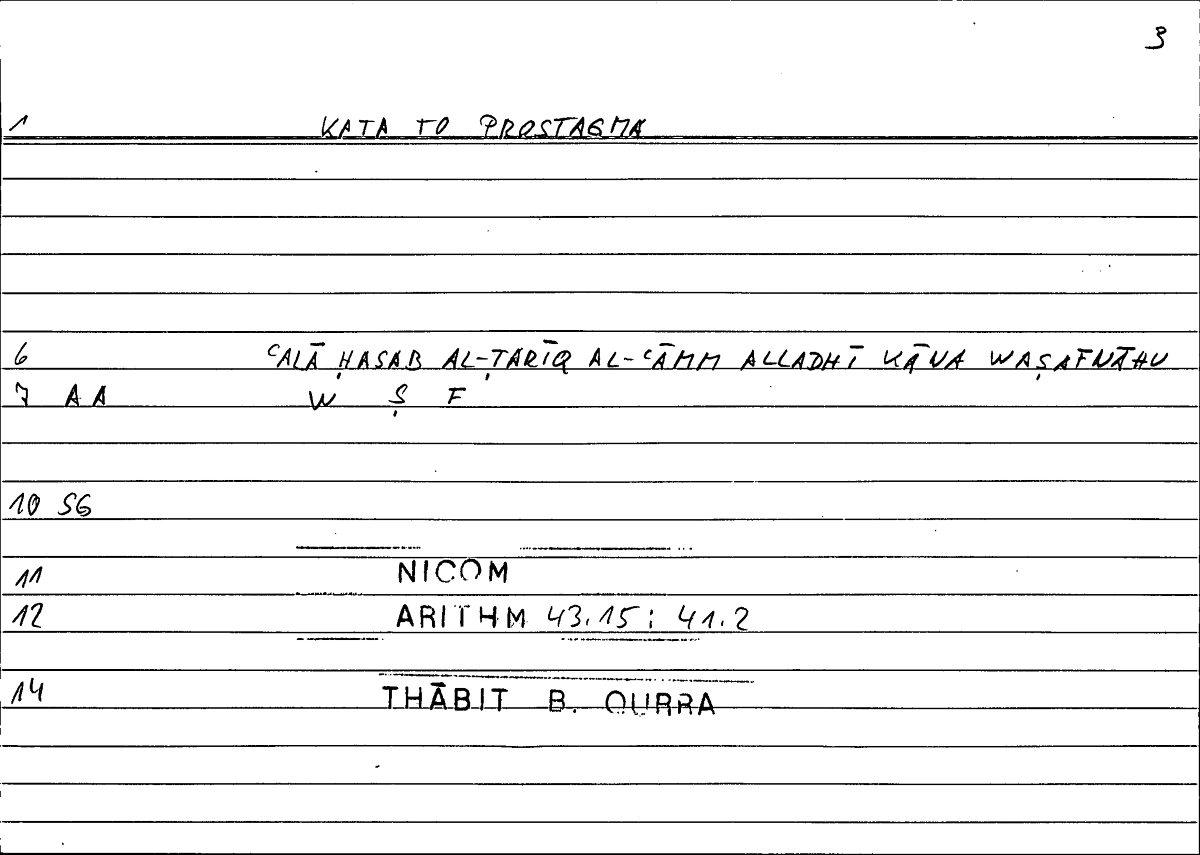 3
1 KATA TO PROSTAGMA
6 ʿALĀ ḤASAB AL-ṬARĪQ AL-ʿĀMM ALLADHĪ KĀNA WAṢAFNĀHU
7 AA W Ṣ F
10 SG
11 NICOM
12 ARITHM 43.15 : 41.2
14 THĀBIT B. QURRA